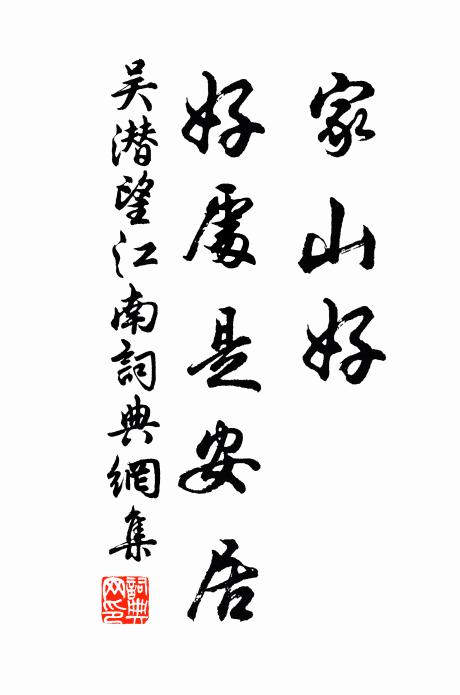 家山好
好處是安居
吴潜望江南詞典網集
詞典網印